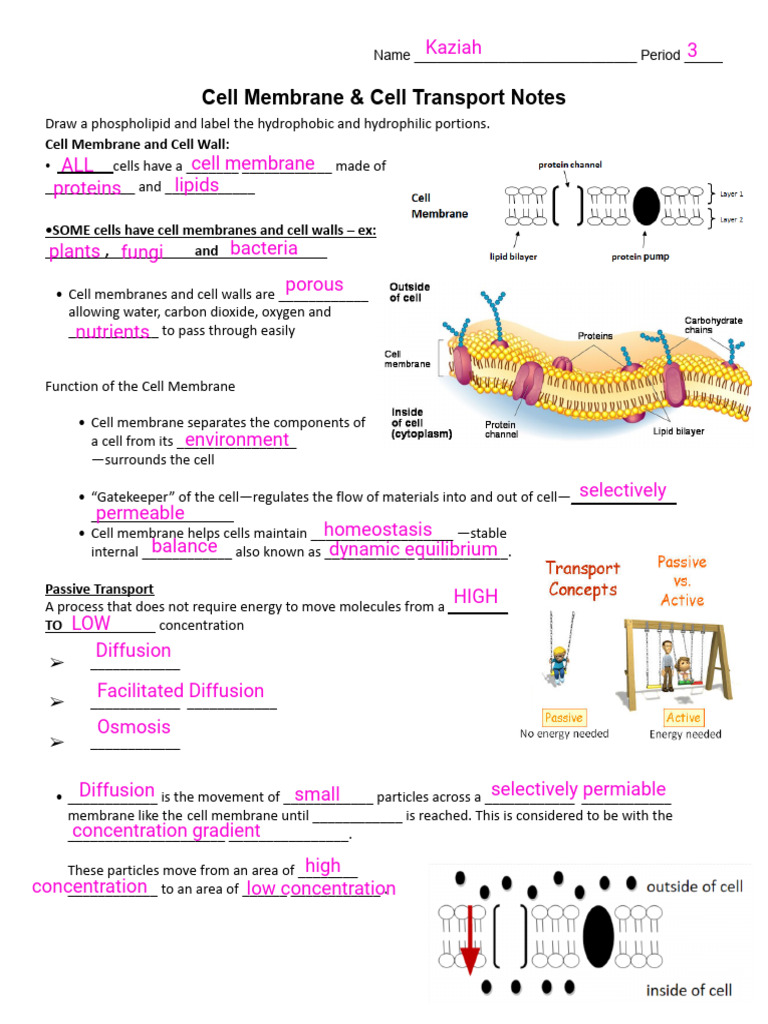 Name Kaziah Period 3
Cell Membrane & Cell Transport Notes
Draw a phospholipid and label the hydrophobic and hydrophilic portions.
Cell Membrane and Cell Wall:
• ALL cells have a cell membrane made of
proteins and lipids
•SOME cells have cell membranes and cell walls – ex:
plants , fungi and bacteria
• Cell membranes and cell walls are porous
allowing water, carbon dioxide, oxygen and
nutrients to pass through easily
protein channel
Cell
Membrane
Layer 1
Layer 2
lipid bilayer
protein pump
Outside
of cell
Carbohydrate
chains
Proteins
Cell
membrane
Inside
of cell
(cytoplasm)
Protein
channel
Lipid bilayer
Function of the Cell Membrane
• Cell membrane separates the components of
a cell from its environment
—surrounds the cell
• “Gatekeeper” of the cell—regulates the flow of materials into and out of cell—selectively
permeable
• Cell membrane helps cells maintain homeostasis —stable
internal balance also known as dynamic equilibrium.
Passive Transport
A process that does not require energy to move molecules from a HIGH
TO LOW concentration
➢ Diffusion
➢ Facilitated Diffusion
➢ Osmosis
Transport
Concepts
Passive
vs.
Active
Passive
No energy needed
Active
Energy needed
• Diffusion is the movement of small particles across a selectively permiable
membrane like the cell membrane until ____________ is reached. This is considered to be with the
concentration gradient.
These particles move from an area of high
concentration to an area of low concentration.
outside of cell
inside of cell